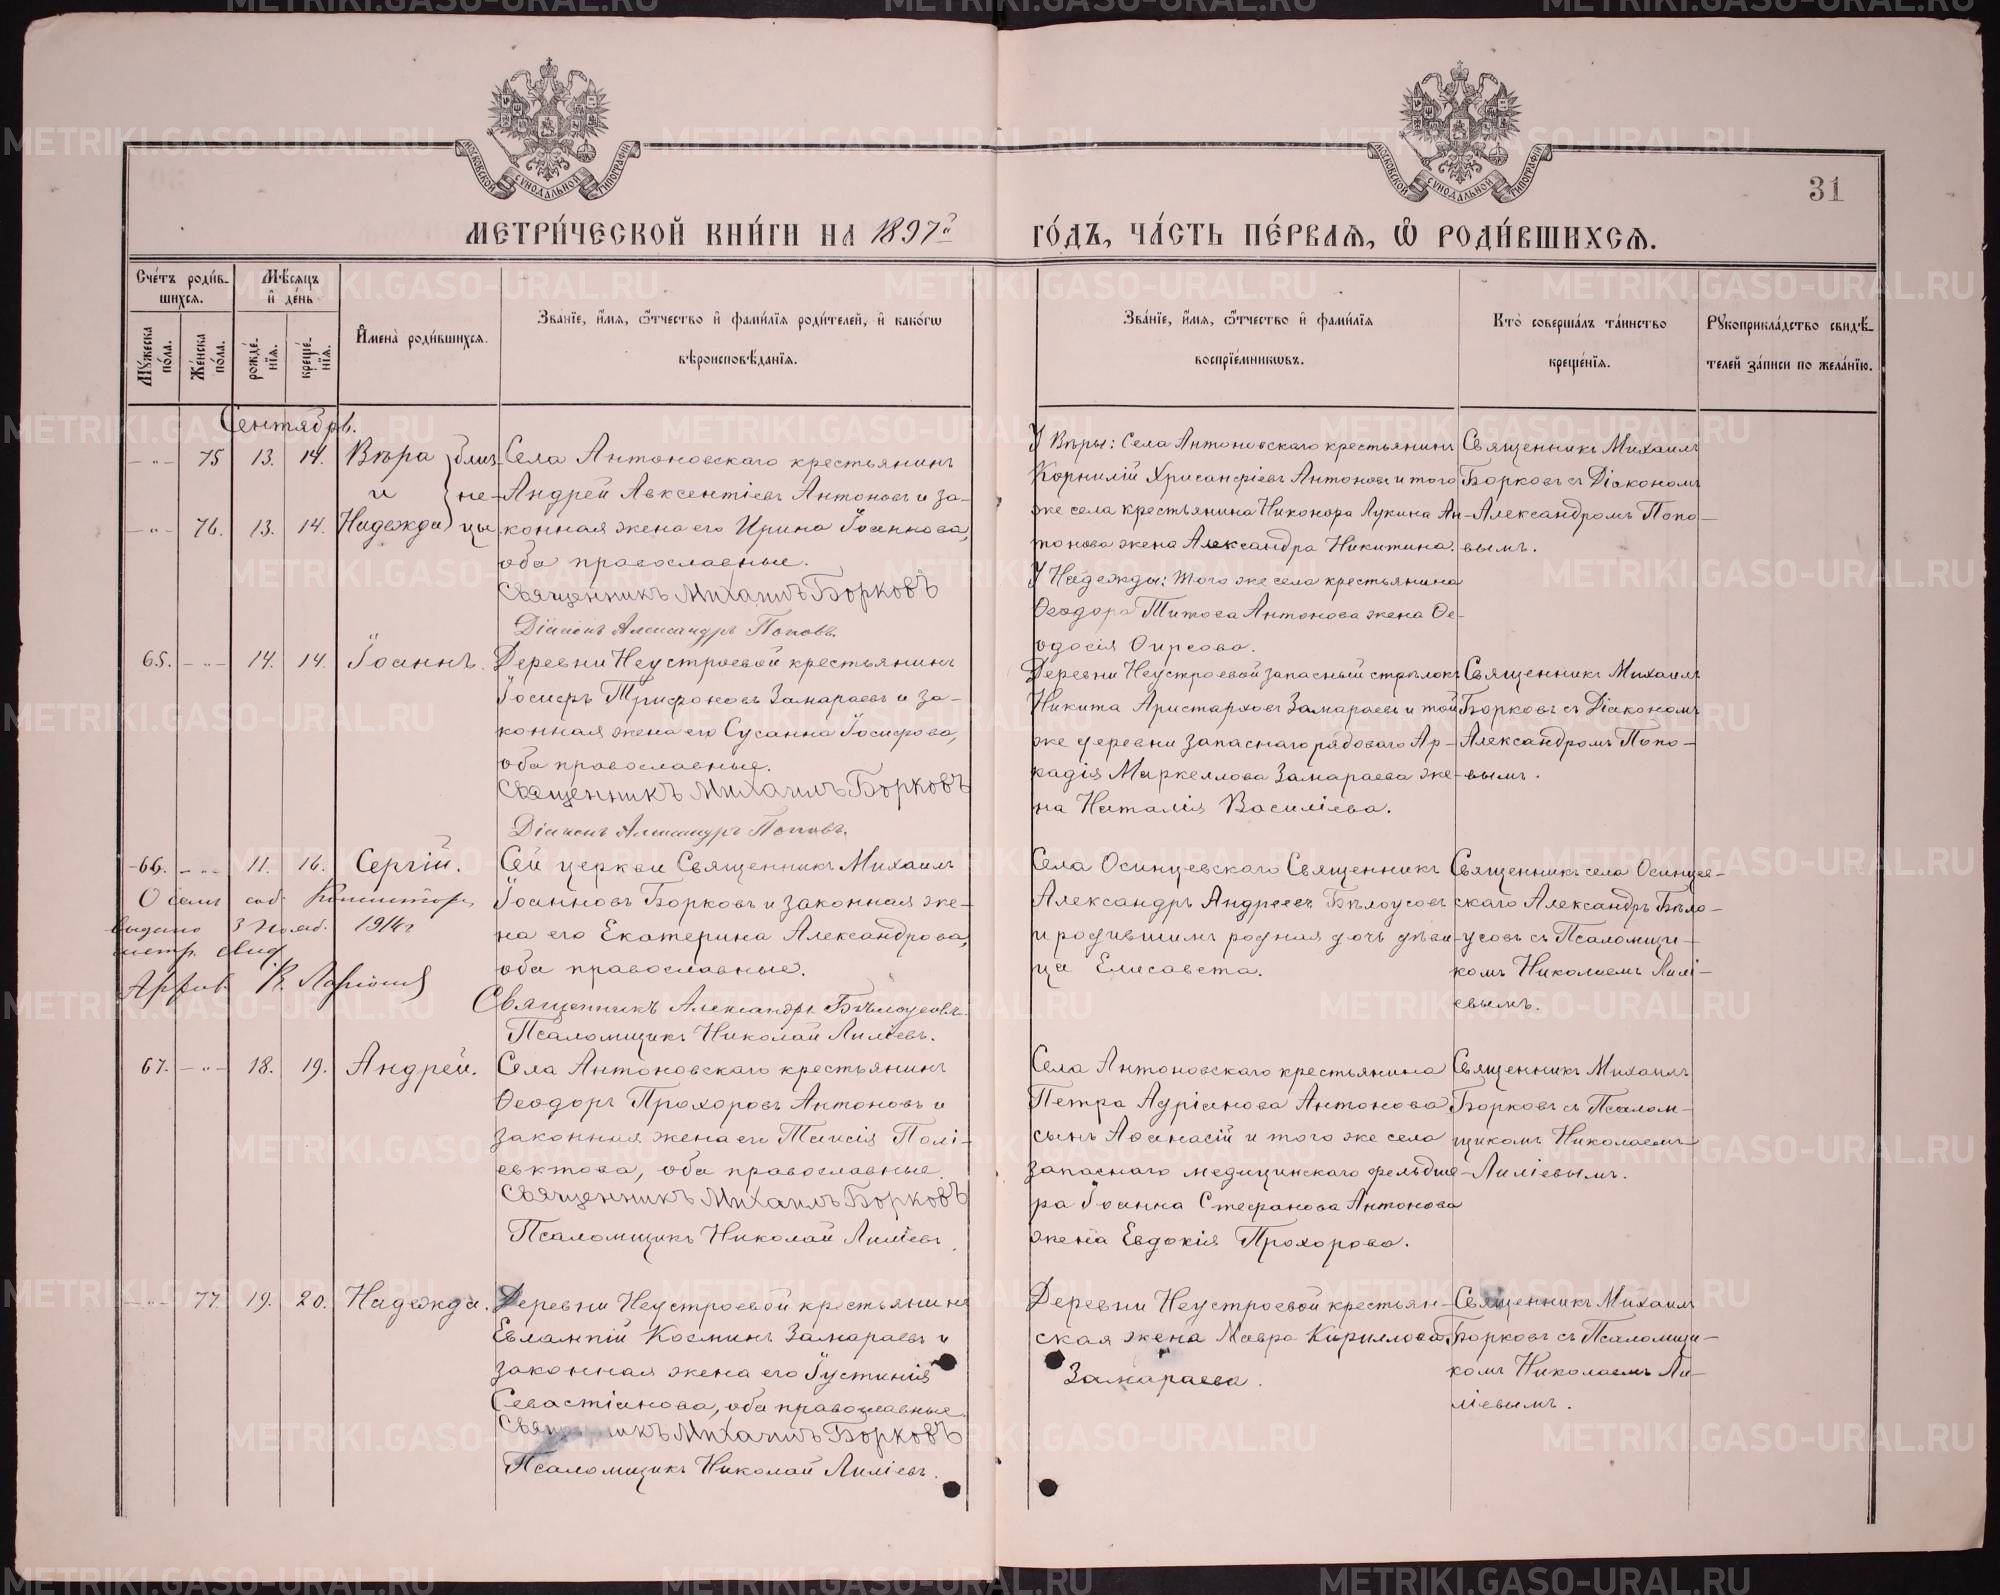 МЕТРИ́ЧЕСКОЙ КНИ́ГИ НА 1897й
ГО́ДЪ, ЧА́СТЬ ПЕ́РВАѦ, Ѡ РОДИ́ВШИХСѦ.
31
МОСКОВСКОЙ СѴНОДАЛЬНОЙ ТИПОГРАФІИ
МОСКОВСКОЙ СѴНОДАЛЬНОЙ ТИПОГРАФІИ
Сче́тъ роди́в-
шихсѧ.
Мѹ́жеска по́ла.
Же́нска по́ла.
Мѣ́сѧцъ
и҆ де́нь
рожде́-
нїѧ.
креще́-
нїѧ.
И҆мена̀ роди́вшихсѧ.
Зва́нїе, и҆́мѧ, ѻ҆́тчество и҆ фами́лїѧ роди́телей, и҆ како́гѡ
вѣроисповѣ́данїѧ.
Зва́нїе, и҆́мѧ, ѻ҆́тчество и҆ фами́лїѧ
воспрїе́мникѡвъ.
Кто̀ соверша́лъ та́инство
креще́нїѧ.
Рꙋкоприкла́дство свидѣ́-
телей за́писи по жела́нїю.
Сентябрь.
- " - 75 13. 14. Вѣра
и
- " - 76. 13. 14. Надежда
близ-
не-
цы.
Села Антоновскаго крестьянинъ
Андрей Авксентіевъ Антоновъ и за-
конная жена его Ирина Іоаннова,
оба православные.
Священникъ Михаилъ Борковъ
Діаконъ Александръ Поповъ.
У Вѣры: Села Антоновскаго крестьянинъ
Корнилій Хрисанфіевъ Антоновъ и того
же села крестьянина Никонора Лукина Ан-
тонова жена Александра Никитина.
У Надежды: того же села крестьянина
Ѳеодора Титова Антонова жена Ѳе-
одосія Ѳирсова.
Священникъ Михаилъ
Борковъ съ Діакономъ
Александромъ Попо-
вымъ.
65. - " - 14. 14. Іоаннъ.
Деревни Неустроевой крестьянинъ
Іосифъ Трифоновъ Замараевъ и за-
конная жена его Сусанна Іосифова,
оба православные.
Священникъ Михаилъ Борковъ
Діаконъ Александръ Поповъ.
Деревни Неустроевой запасный стрѣлокъ
Никита Аристарховъ Замараевъ и той
же деревни запаснаго рядоваго Ар-
кадія Маркеллова Замараева же-
на Наталія Василіева.
Священникъ Михаилъ
Борковъ съ Діакономъ
Александромъ Попо-
вымъ.
66. - " - 11. 16. Сергій.
О семъ
выдано 3 Нояб. 1914г
метр. свид.
Сей церкви Священникъ Михаилъ
Іоанновъ Борковъ и законная же-
на его Екатерина Александрова,
оба православные.
Священникъ Александръ Бѣлоусовъ.
Псаломщикъ Николай Лиліевъ.
Села Осинцевскаго Священникъ
Александръ Андреевъ Бѣлоусовъ
и родившимъ родная дочь дѣви-
ца Елисавета.
Священникъ села Осинцев-
скаго Александръ Бѣло-
усовъ съ Псаломщи-
комъ Николаемъ Лилі-
евымъ.
67. - " - 18. 19. Андрей.
Села Антоновскаго крестьянинъ
Ѳеодоръ Прохоровъ Антоновъ и
законная жена его Таисія Полі-
евктова, оба православные.
Священникъ Михаилъ Борковъ
Псаломщикъ Николай Лиліевъ.
Села Антоновскаго крестьянина
Петра Адріанова Антонова
сынъ Аѳанасій и того же села
запаснаго медицинскаго фельдше-
ра Іоанна Стефанова Антонова
жена Евдокія Прохорова.
Священникъ Михаилъ
Борковъ съ Псалом-
щикомъ Николаемъ
Лиліевымъ.
- " - 77. 19. 20. Надежда.
Деревни Неустроевой крестьянинъ
Евлампій Косминъ Замараевъ и
законная жена его Іустинія
Севастіанова, оба православные.
Священникъ Михаилъ Борковъ
Псаломщикъ Николай Лиліевъ.
Деревни Неустроевой крестьян-
ская жена Мавра Кириллова
Замараева.
Священникъ Михаилъ
Борковъ съ Псаломщи-
комъ Николаемъ Ли-
ліевымъ.
METRIKI.GASO-URAL.RU